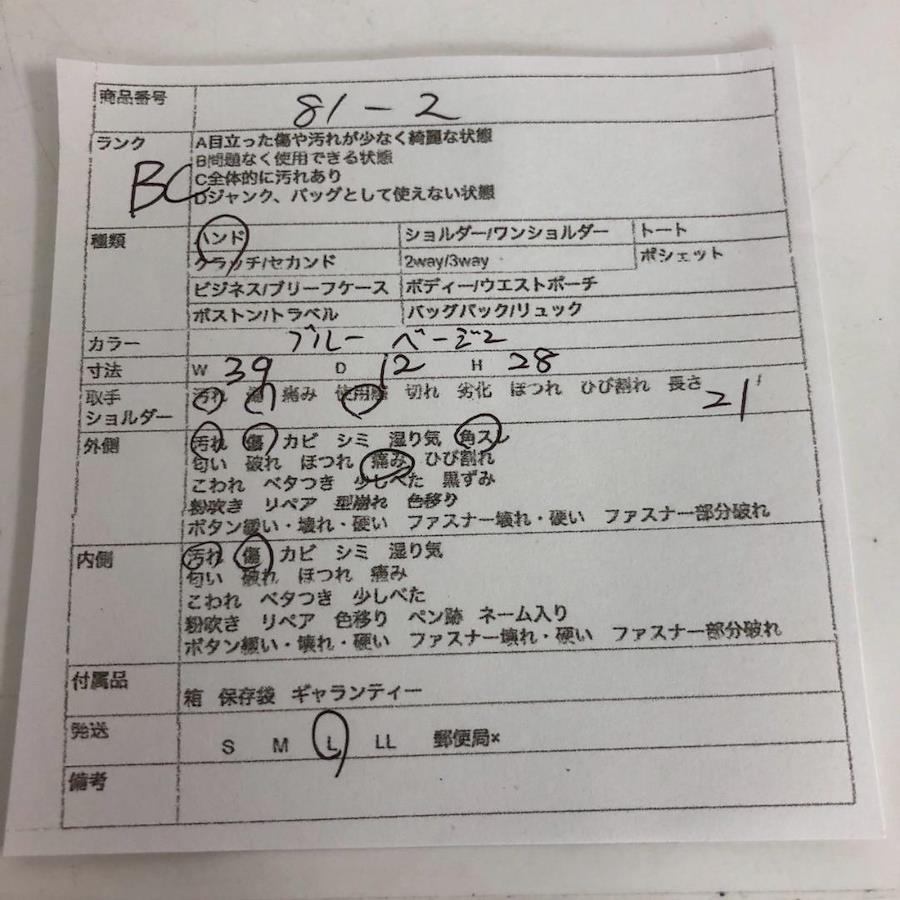 商品番号 81-2
ランク A目立った傷や汚れが少なく綺麗な状態
B問題なく使用できる状態
BC C全体的に汚れあり
Dジャンク、バッグとして使えない状態
種類 ハンド ショルダー/ワンショルダー トート
クラッチ/セカンド 2way/3way ポシェット
ビジネス/ブリーフケース ボディー/ウエストポーチ
ボストン/トラベル バッグパック/リュック
カラー ブルー ベージュ
寸法 W 39 D 12 H 28
取手 汚れ 傷 痛み 使用感 切れ 劣化 ほつれ ひび割れ 長さ 21
ショルダー
外側 汚れ 傷 カビ シミ 湿り気 角スレ
匂い 破れ ほつれ 痛み ひび割れ
こわれ ベタつき 少しべた 黒ずみ
粉吹き リペア 型崩れ 色移り
ボタン緩い・壊れ・硬い ファスナー壊れ・硬い ファスナー部分破れ
内側 汚れ 傷 カビ シミ 湿り気
匂い 破れ ほつれ 痛み
こわれ ベタつき 少しべた
粉吹き リペア 色移り ペン跡 ネーム入り
ボタン緩い・壊れ・硬い ファスナー壊れ・硬い ファスナー部分破れ
付属品 箱 保存袋 ギャランティー
発送 S M L LL 郵便局×
備考